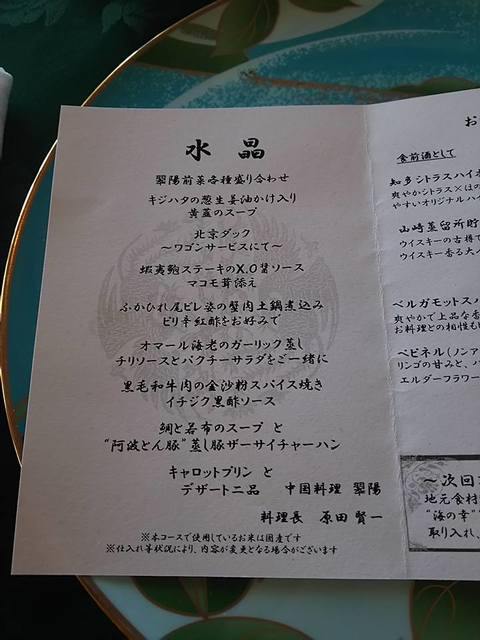 水晶
翠陽前菜各種盛り合わせ
キジハタの葱生姜油かけ入り
黄韮のスープ
北京ダック
～ワゴンサービスにて～
蝦夷鮑ステーキのX.O醤ソース
マコモ茸添え
ふかひれ尾ビレ姿の蟹肉土鍋煮込み
ピリ辛紅酢をお好みで
オマール海老のガーリック蒸し
チリソースとパクチーサラダをご一緒に
黒毛和牛肉の金沙粉スパイス焼き
イチジク黒酢ソース
鯛と若布のスープ と
“阿波とん豚”蒸し豚ザーサイチャーハン
キャロットプリン と
デザート二品 中国料理 翠陽
料理長 原田 賢一
※本コースで使用しているお米は国産です
※仕入れ等状況により、内容が変更となる場合がございます
お
食前酒として
知多シトラスハイボ
爽やかシトラス×ほの
やすいオリジナルハイ
山崎蒸留所貯
ウイスキーの古樽で
ウイスキー香る大人
ベルガモットス
爽やかで上品な香
お料理との相性も
ベビネル(ノンア
リンゴの甘みと、ハ
エルダーフラワー
～次回
地元食材
“海の幸”
取り入れ、